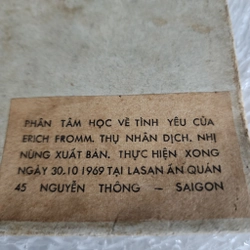 PHÂN TÂM HỌC VỀ TÌNH YÊU CỦA
ERICH FROMM. THỤ NHÂN DỊCH, NHỊ
NÙNG XUẤT BẢN. THỰC HIỆN XONG
NGÀY 30.10 1969 TẠI LASAN ẤN QUÁN
45 NGUYỄN THÔNG – SAIGON